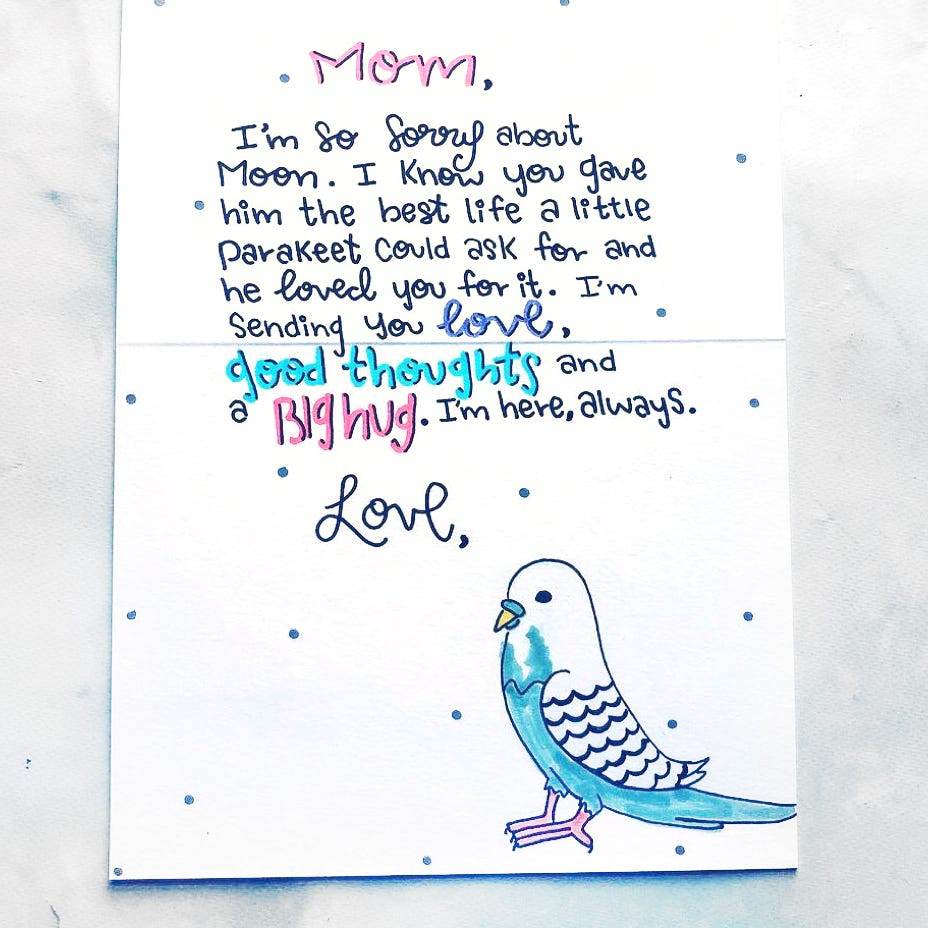 Mom,
I'm so sorry about
Moon. I know you gave
him the best life a little
parakeet could ask for and
he loved you for it. I'm
sending you love,
good thoughts and
a Big hug. I'm here, always.
Love,